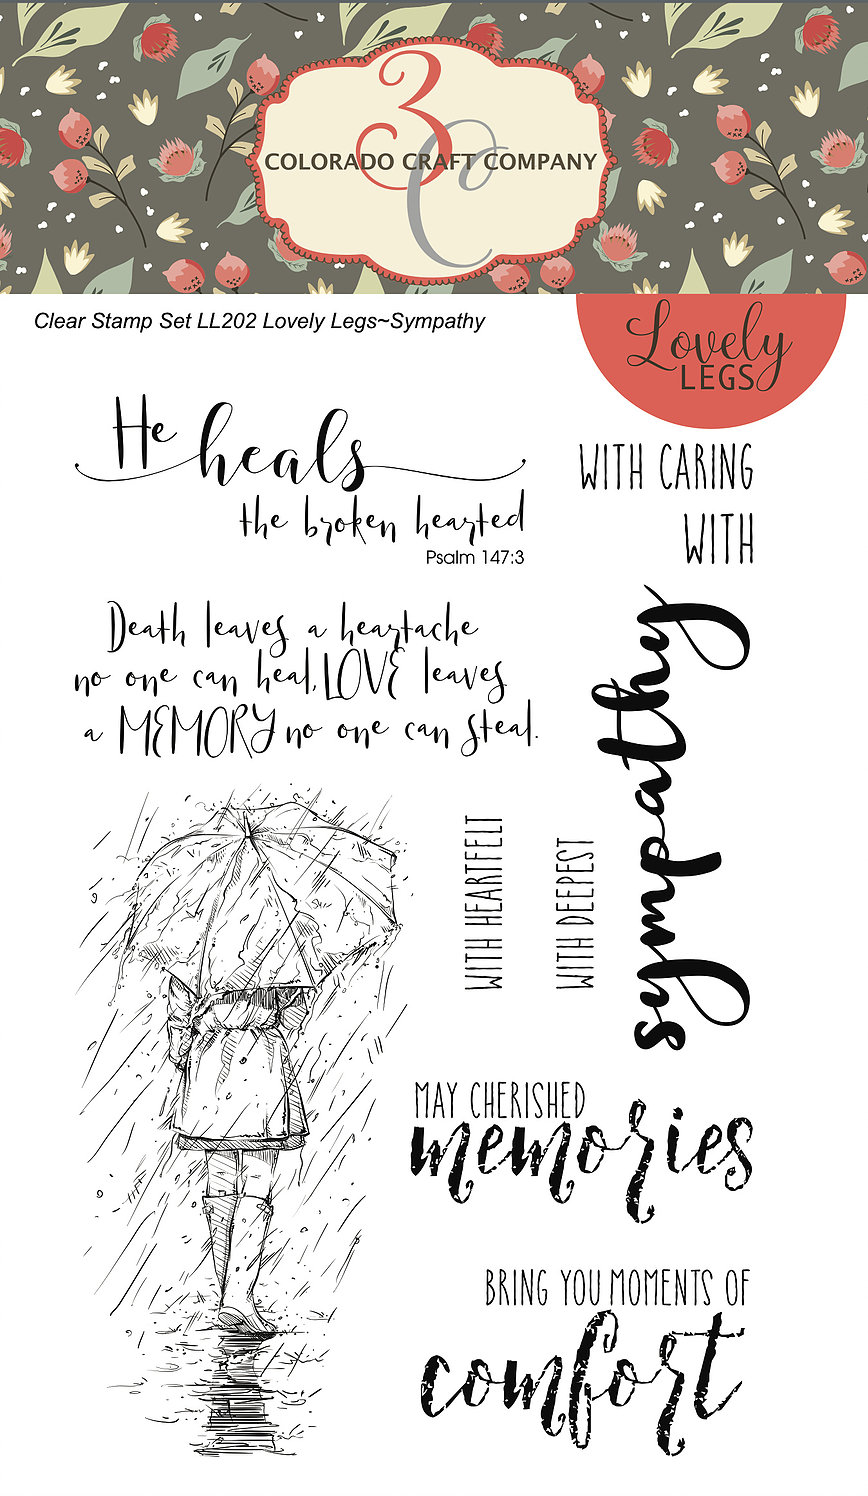 3
C Co
COLORADO CRAFT COMPANY
Clear Stamp Set LL202 Lovely Legs~Sympathy
Lovely
LEGS
He heals
the broken hearted
Psalm 147:3
WITH CARING
WITH
sympathy
Death leaves a heartache
no one can heal, LOVE leaves
a MEMORY no one can steal.
WITH HEARTFELT
WITH DEEPEST
MAY CHERISHED
memories
BRING YOU MOMENTS OF
comfort